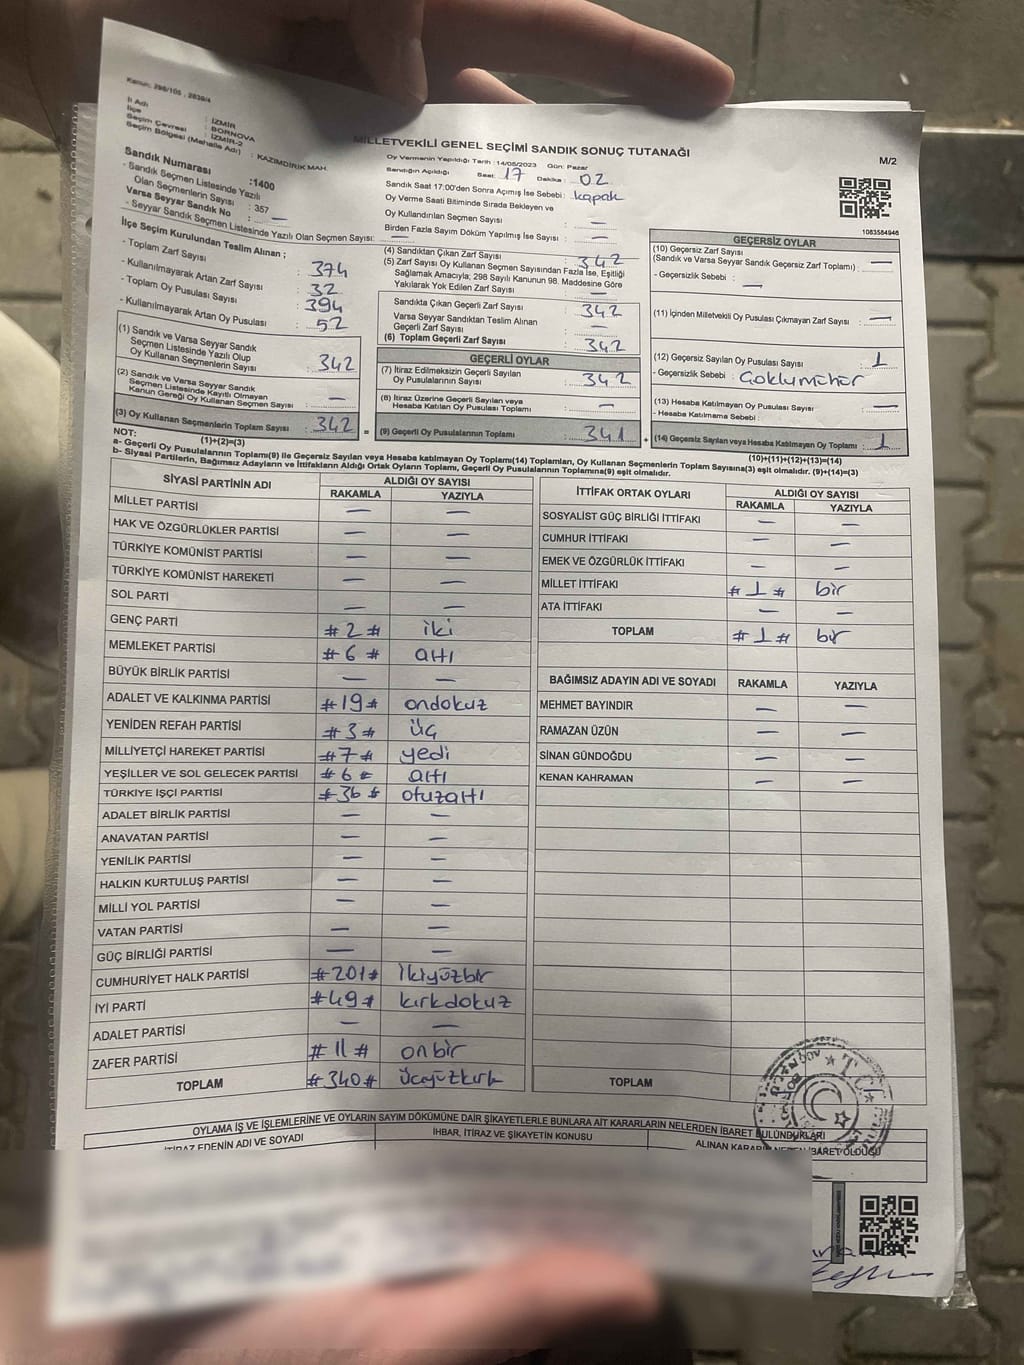 Kanun: 298/105 , 2839/4
İl Adı : İZMİR
İlçe : BORNOVA
Seçim Çevresi : İZMİR-2
Seçim Bölgesi (Mahalle Adı) : KAZIMDİRİK MAH.
MİLLETVEKİLİ GENEL SEÇİMİ SANDIK SONUÇ TUTANAĞI
M/2
Oy Vermenin Yapıldığı Tarih :14/05/2023 Gün: Pazar
Sandığın Açıldığı Saat : 17 Dakika : 02
Sandık Saat 17:00'den Sonra Açılmış İse Sebebi : kapak
Oy Verme Saati Bitiminde Sırada Bekleyen ve
Oy Kullandırılan Seçmen Sayısı : —
Birden Fazla Sayım Döküm Yapılmış İse Sayısı : —
1083584946
Sandık Numarası :1400
- Sandık Seçmen Listesinde Yazılı
Olan Seçmenlerin Sayısı : 357
Varsa Seyyar Sandık No : —
- Seyyar Sandık Seçmen Listesinde Yazılı Olan Seçmen Sayısı: —
İlçe Seçim Kurulundan Teslim Alınan ;
- Toplam Zarf Sayısı : 374
- Kullanılmayarak Artan Zarf Sayısı : 32
- Toplam Oy Pusulası Sayısı : 394
- Kullanılmayarak Artan Oy Pusulası : 52
(1) Sandık ve Varsa Seyyar Sandık
Seçmen Listesinde Yazılı Olup
Oy Kullanan Seçmenlerin Sayısı : 342
(2) Sandık ve Varsa Seyyar Sandık
Seçmen Listesinde Kayıtlı Olmayan
Kanun Gereği Oy Kullanan Seçmen Sayısı : —
(3) Oy Kullanan Seçmenlerin Toplam Sayısı : 342
(1)+(2)=(3)
(4) Sandıktan Çıkan Zarf Sayısı : 342
(5) Zarf Sayısı Oy Kullanan Seçmen Sayısından Fazla İse, Eşitliği
Sağlamak Amacıyla, 298 Sayılı Kanunun 98. Maddesine Göre
Yakılarak Yok Edilen Zarf Sayısı : —
Sandıkta Çıkan Geçerli Zarf Sayısı : 342
Varsa Seyyar Sandıktan Teslim Alınan
Geçerli Zarf Sayısı : —
(6) Toplam Geçerli Zarf Sayısı : 342
GEÇERLİ OYLAR
(7) İtiraz Edilmeksizin Geçerli Sayılan
Oy Pusulalarının Sayısı : 342
(8) İtiraz Üzerine Geçerli Sayılan veya
Hesaba Katılan Oy Pusulası Toplamı : —
= (9) Geçerli Oy Pusulalarının Toplamı : 341
GEÇERSİZ OYLAR
(10) Geçersiz Zarf Sayısı
(Sandık ve Varsa Seyyar Sandık Geçersiz Zarf Toplamı) : —
- Geçersizlik Sebebi : —
(11) İçinden Milletvekili Oy Pusulası Çıkmayan Zarf Sayısı : —
(12) Geçersiz Sayılan Oy Pusulası Sayısı : 1
- Geçersizlik Sebebi :
(13) Hesaba Katılmayan Oy Pusulası Sayısı : —
- Hesaba Katılmama Sebebi :
+ (14) Geçersiz Sayılan veya Hesaba Katılmayan Oy Toplamı : 1
(10)+(11)+(12)+(13)=(14)
NOT:
a- Geçerli Oy Pusulalarının Toplamı(9) ile Geçersiz Sayılan veya Hesaba katılmayan Oy Toplamı(14) Toplamları, Oy Kullanan Seçmenlerin Toplam Sayısına(3) eşit olmalıdır. (9)+(14)=(3)
b- Siyasi Partilerin, Bağımsız Adayların ve İttifakların Aldığı Ortak Oyların Toplamı, Geçerli Oy Pusulalarının Toplamına(9) eşit olmalıdır.
SİYASİ PARTİNİN ADI ALDIĞI OY SAYISI
RAKAMLA YAZIYLA
MİLLET PARTİSİ — —
HAK VE ÖZGÜRLÜKLER PARTİSİ — —
TÜRKİYE KOMÜNİST PARTİSİ — —
TÜRKİYE KOMÜNİST HAREKETİ — —
SOL PARTİ — —
GENÇ PARTİ #2# iki
MEMLEKET PARTİSİ #6# altı
BÜYÜK BİRLİK PARTİSİ — —
ADALET VE KALKINMA PARTİSİ #19# ondokuz
YENİDEN REFAH PARTİSİ #3# üç
MİLLİYETÇİ HAREKET PARTİSİ #7# yedi
YEŞİLLER VE SOL GELECEK PARTİSİ #6# altı
TÜRKİYE İŞÇİ PARTİSİ #36# otuzaltı
ADALET BİRLİK PARTİSİ — —
ANAVATAN PARTİSİ — —
YENİLİK PARTİSİ — —
HALKIN KURTULUŞ PARTİSİ — —
MİLLİ YOL PARTİSİ — —
VATAN PARTİSİ — —
GÜÇ BİRLİĞİ PARTİSİ — —
CUMHURİYET HALK PARTİSİ #201# ikiyüzbir
İYİ PARTİ #49# kırkdokuz
ADALET PARTİSİ — —
ZAFER PARTİSİ #11# onbir
TOPLAM #340# üçyüzkırk
İTTİFAK ORTAK OYLARI ALDIĞI OY SAYISI
RAKAMLA YAZIYLA
SOSYALİST GÜÇ BİRLİĞİ İTTİFAKI — —
CUMHUR İTTİFAKI — —
EMEK VE ÖZGÜRLÜK İTTİFAKI — —
MİLLET İTTİFAKI #1# bir
ATA İTTİFAKI — —
TOPLAM #1# bir
BAĞIMSIZ ADAYIN ADI VE SOYADI RAKAMLA YAZIYLA
MEHMET BAYINDIR — —
RAMAZAN ÜZÜN — —
SİNAN GÜNDOĞDU — —
KENAN KAHRAMAN — —
TOPLAM
T.C.
OYLAMA İŞ VE İŞLEMLERİNE VE OYLARIN SAYIM DÖKÜMÜNE DAİR ŞİKAYETLERLE BUNLARA AİT KARARLARIN NELERDEN İBARET BULUNDUKLARI
İTİRAZ EDENİN ADI VE SOYADI İHBAR, İTİRAZ VE ŞİKAYETİN KONUSU ALINAN KARARIN NEDEN İBARET OLDUĞU